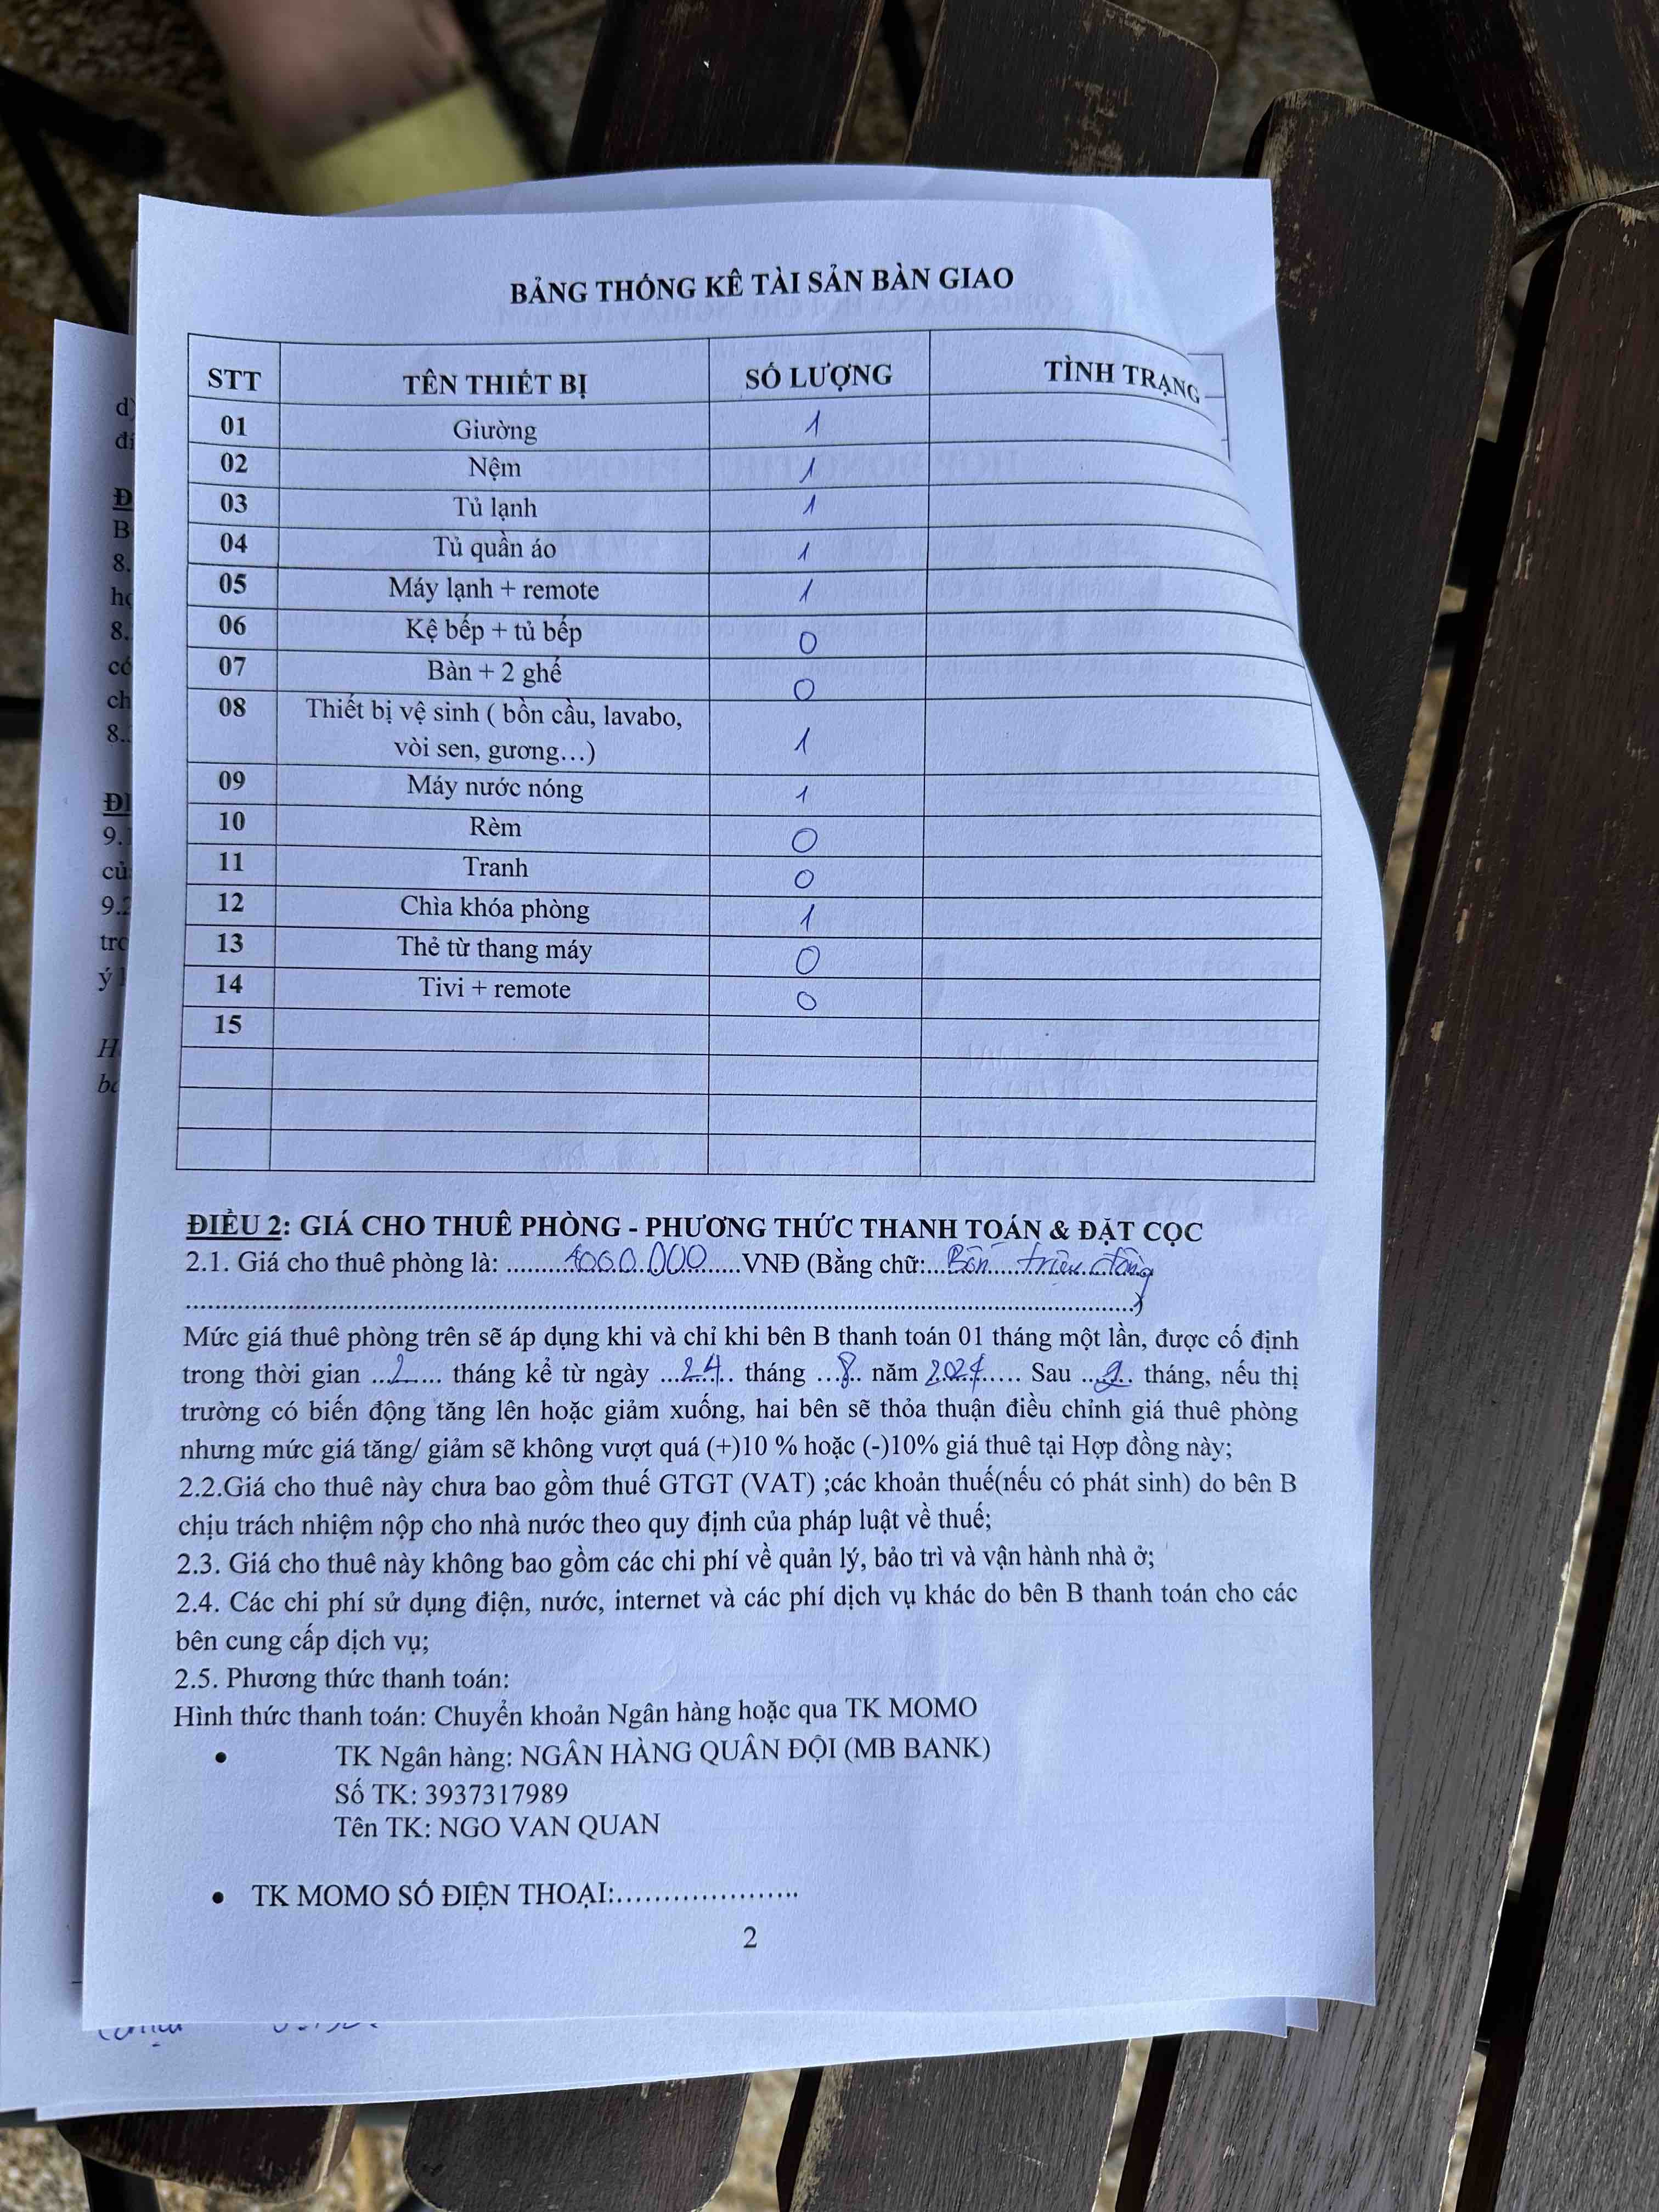 BẢNG THỐNG KÊ TÀI SẢN BÀN GIAO
STT TÊN THIẾT BỊ SỐ LƯỢNG TÌNH TRẠNG
01 Giường 1
02 Nệm 1
03 Tủ lạnh 1
04 Tủ quần áo 1
05 Máy lạnh + remote 1
06 Kệ bếp + tủ bếp 0
07 Bàn + 2 ghế 0
08 Thiết bị vệ sinh ( bồn cầu, lavabo,
vòi sen, gương…) 1
09 Máy nước nóng 1
10 Rèm 0
11 Tranh 0
12 Chìa khóa phòng 1
13 Thẻ từ thang máy 0
14 Tivi + remote 0
15
ĐIỀU 2: GIÁ CHO THUÊ PHÒNG - PHƯƠNG THỨC THANH TOÁN & ĐẶT CỌC
2.1. Giá cho thuê phòng là: ..........4000.000......VNĐ (Bằng chữ:...Bốn....triệu..đồng
..........................................................................................................)
Mức giá thuê phòng trên sẽ áp dụng khi và chỉ khi bên B thanh toán 01 tháng một lần, được cố định
trong thời gian ..2..... tháng kể từ ngày ...24.. tháng ...8.. năm 2024...... Sau ...2.. tháng, nếu thị
trường có biến động tăng lên hoặc giảm xuống, hai bên sẽ thỏa thuận điều chỉnh giá thuê phòng
nhưng mức giá tăng/ giảm sẽ không vượt quá (+)10 % hoặc (-)10% giá thuê tại Hợp đồng này;
2.2.Giá cho thuê này chưa bao gồm thuế GTGT (VAT) ;các khoản thuế(nếu có phát sinh) do bên B
chịu trách nhiệm nộp cho nhà nước theo quy định của pháp luật về thuế;
2.3. Giá cho thuê này không bao gồm các chi phí về quản lý, bảo trì và vận hành nhà ở;
2.4. Các chi phí sử dụng điện, nước, internet và các phí dịch vụ khác do bên B thanh toán cho các
bên cung cấp dịch vụ;
2.5. Phương thức thanh toán:
Hình thức thanh toán: Chuyển khoản Ngân hàng hoặc qua TK MOMO
• TK Ngân hàng: NGÂN HÀNG QUÂN ĐỘI (MB BANK)
Số TK: 3937317989
Tên TK: NGO VAN QUAN
• TK MOMO SỐ ĐIỆN THOẠI:....................
2